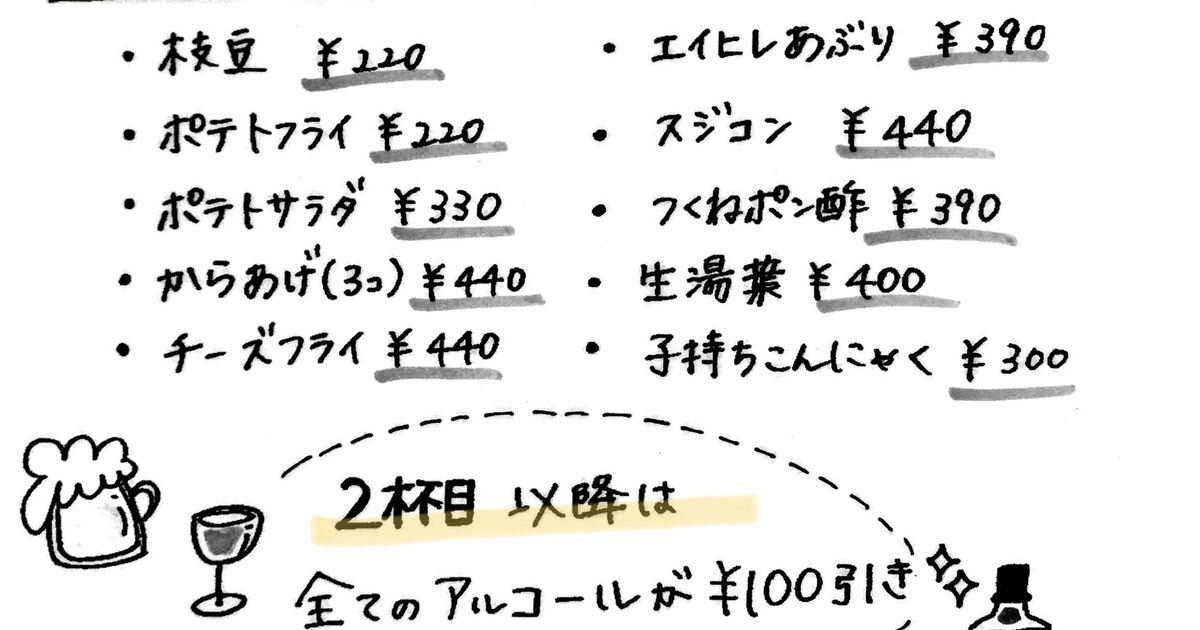 ・枝豆 ¥220
・ポテトフライ ¥220
・ポテトサラダ ¥330
・からあげ(3コ) ¥440
・チーズフライ ¥440
・エイヒレあぶり ¥390
・スジコン ¥440
・つくねポン酢 ¥390
・生湯葉 ¥400
・子持ちこんにゃく ¥300
2杯目以降は
全てのアルコールが¥100引き